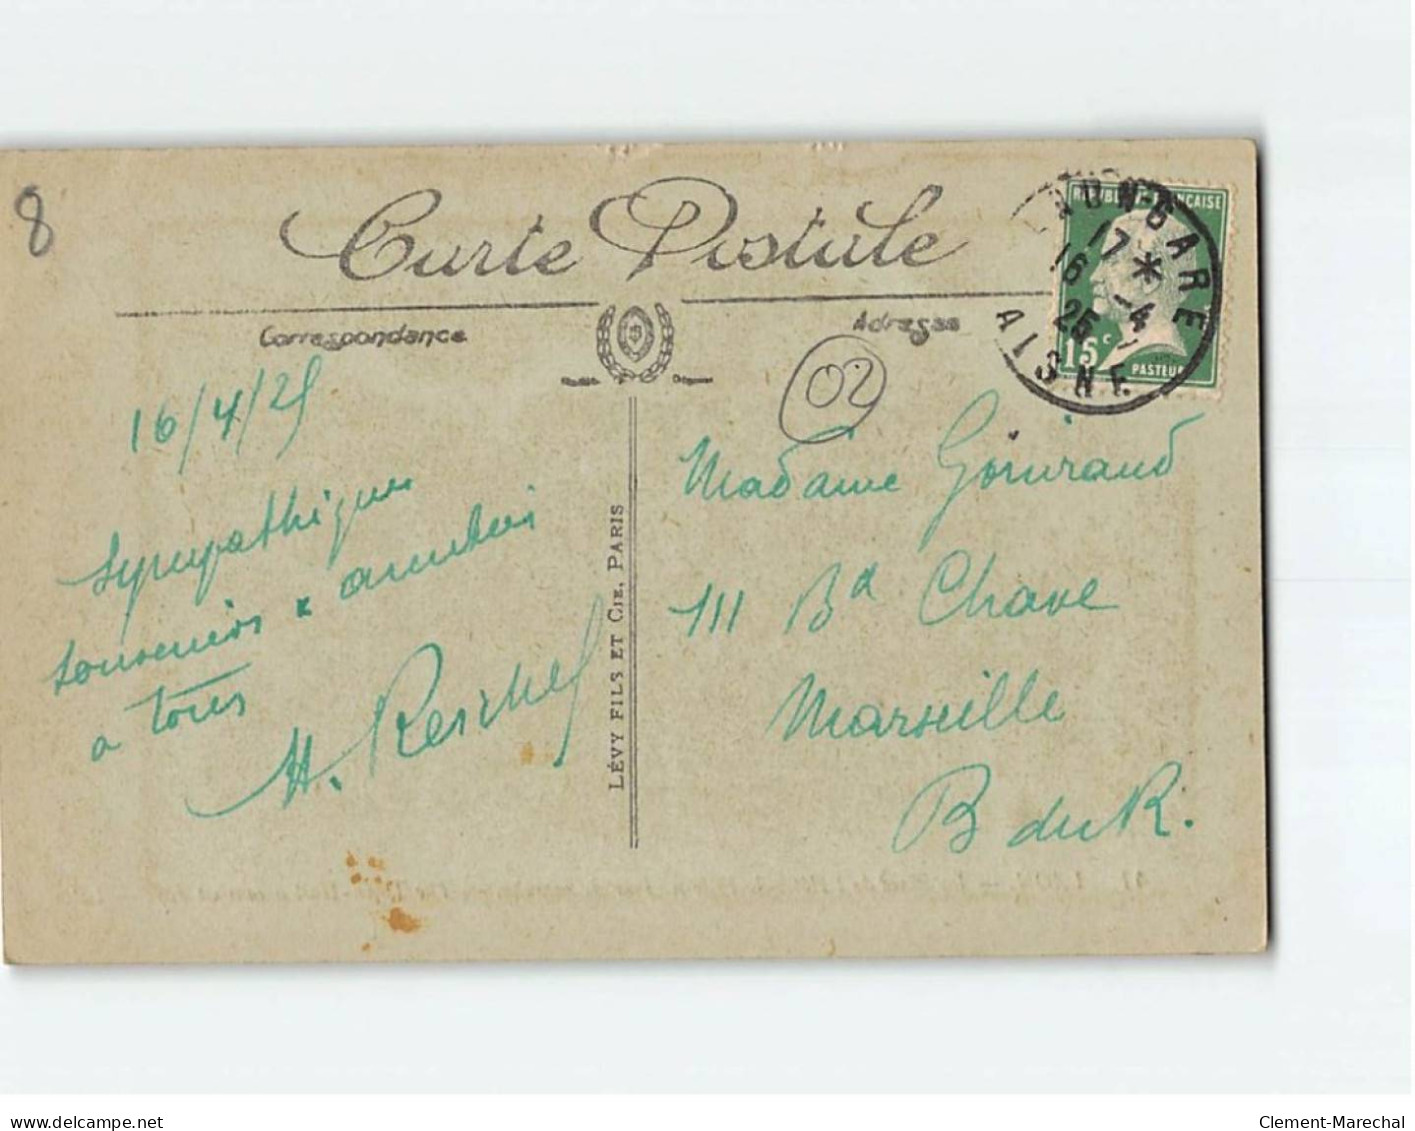 8
Carte Postale
Correspondance
Adresse
02
RÉPUBLIQUE FRANÇAISE
15c
PASTEUR
LAON-GARE
17 *
16 -4
25
AISNE
16/4/25
Sympathiques
souvenirs &
a tous
H.
LÉVY FILS ET CIE, PARIS
Madame
111 Bd Chave
Marseille
B du R.
delcampe.net
Clement-Marechal